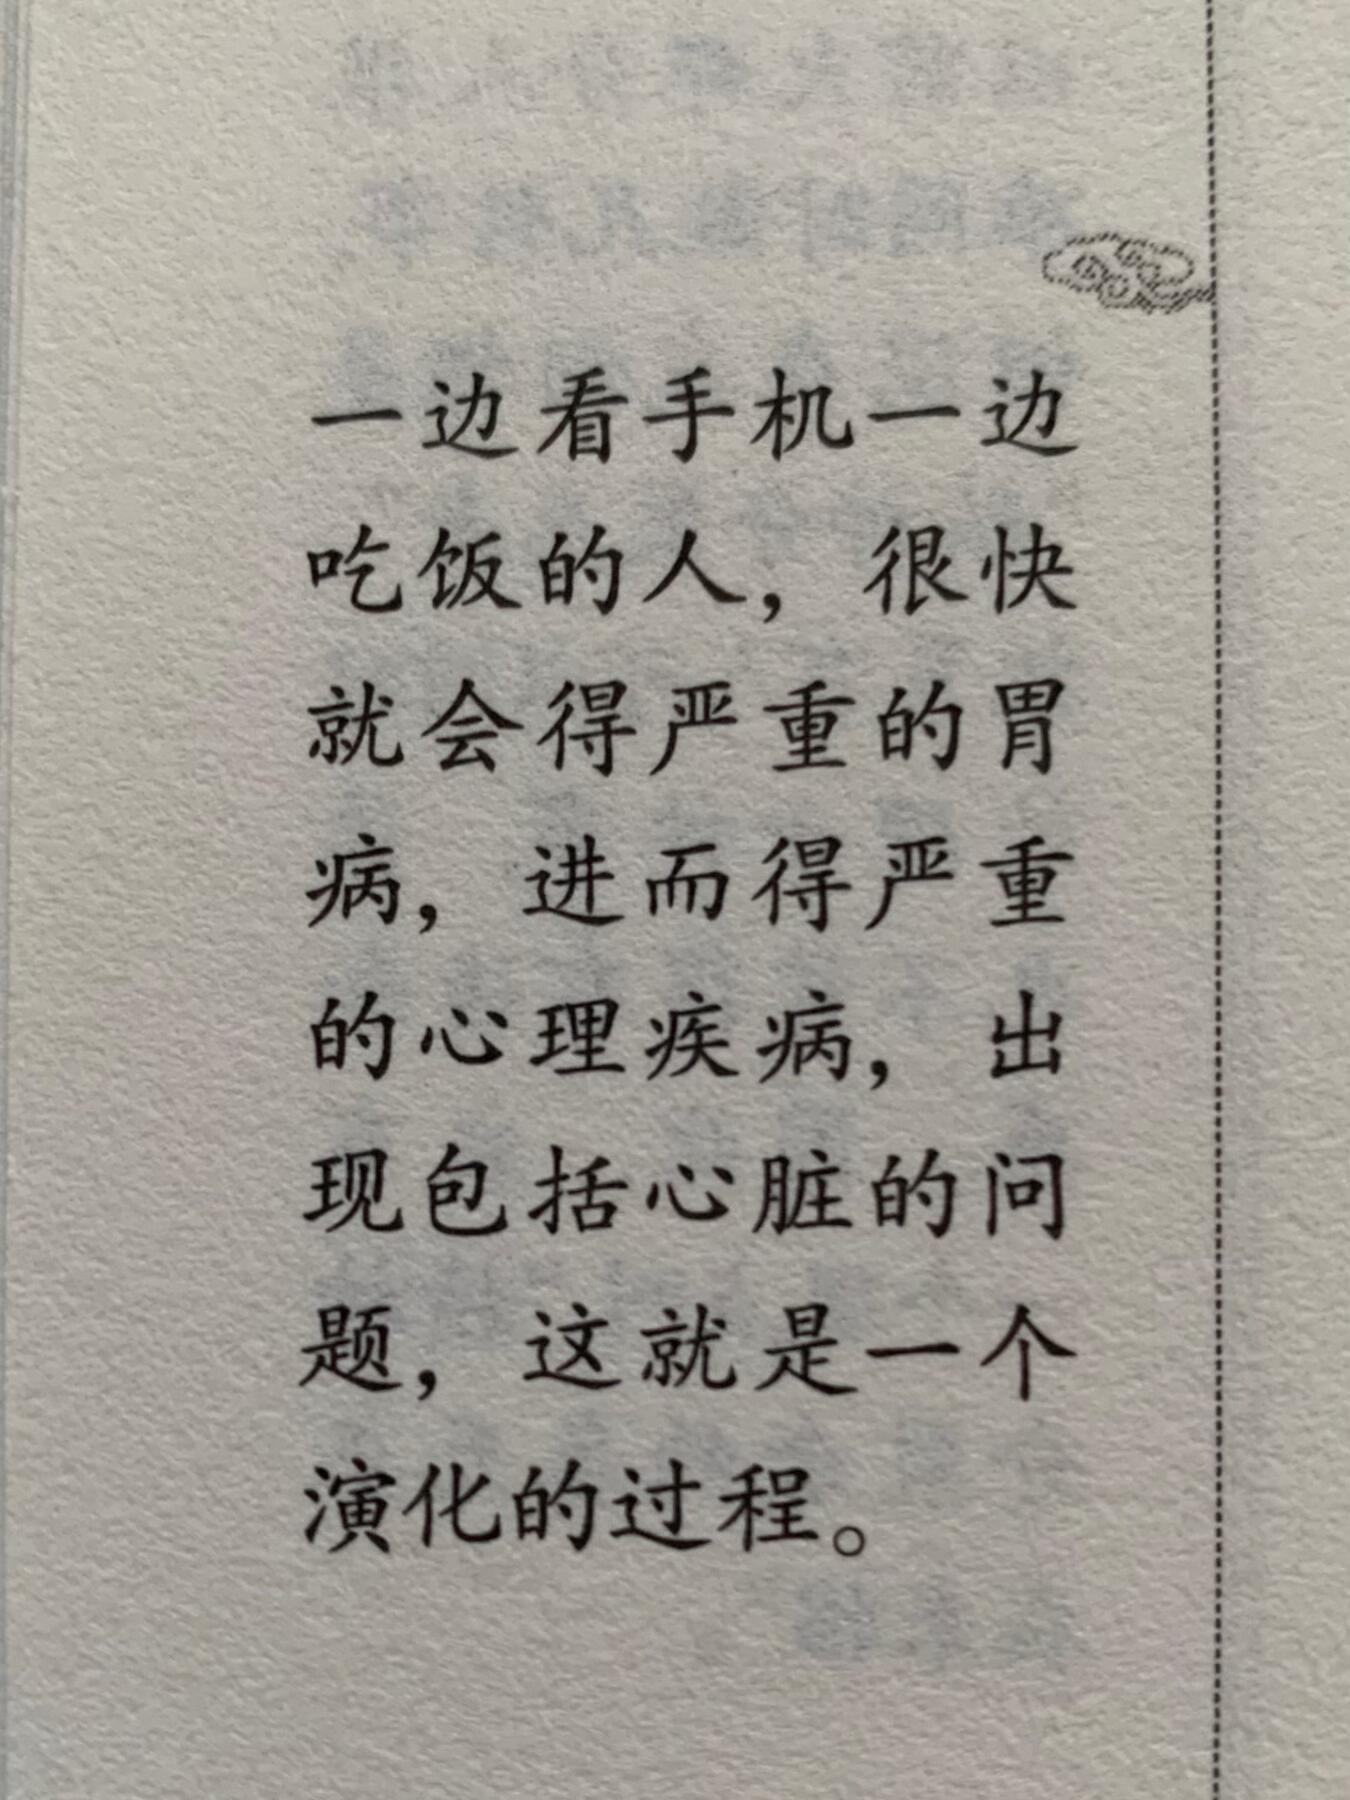 一边看手机一边
吃饭的人，很快
就会得严重的胃
病，进而得严重
的心理疾病，出
现包括心脏的问
题，这就是一个
演化的过程。